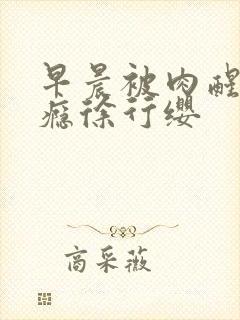 早晨被肉醒
瘾徐行缨
商采薇